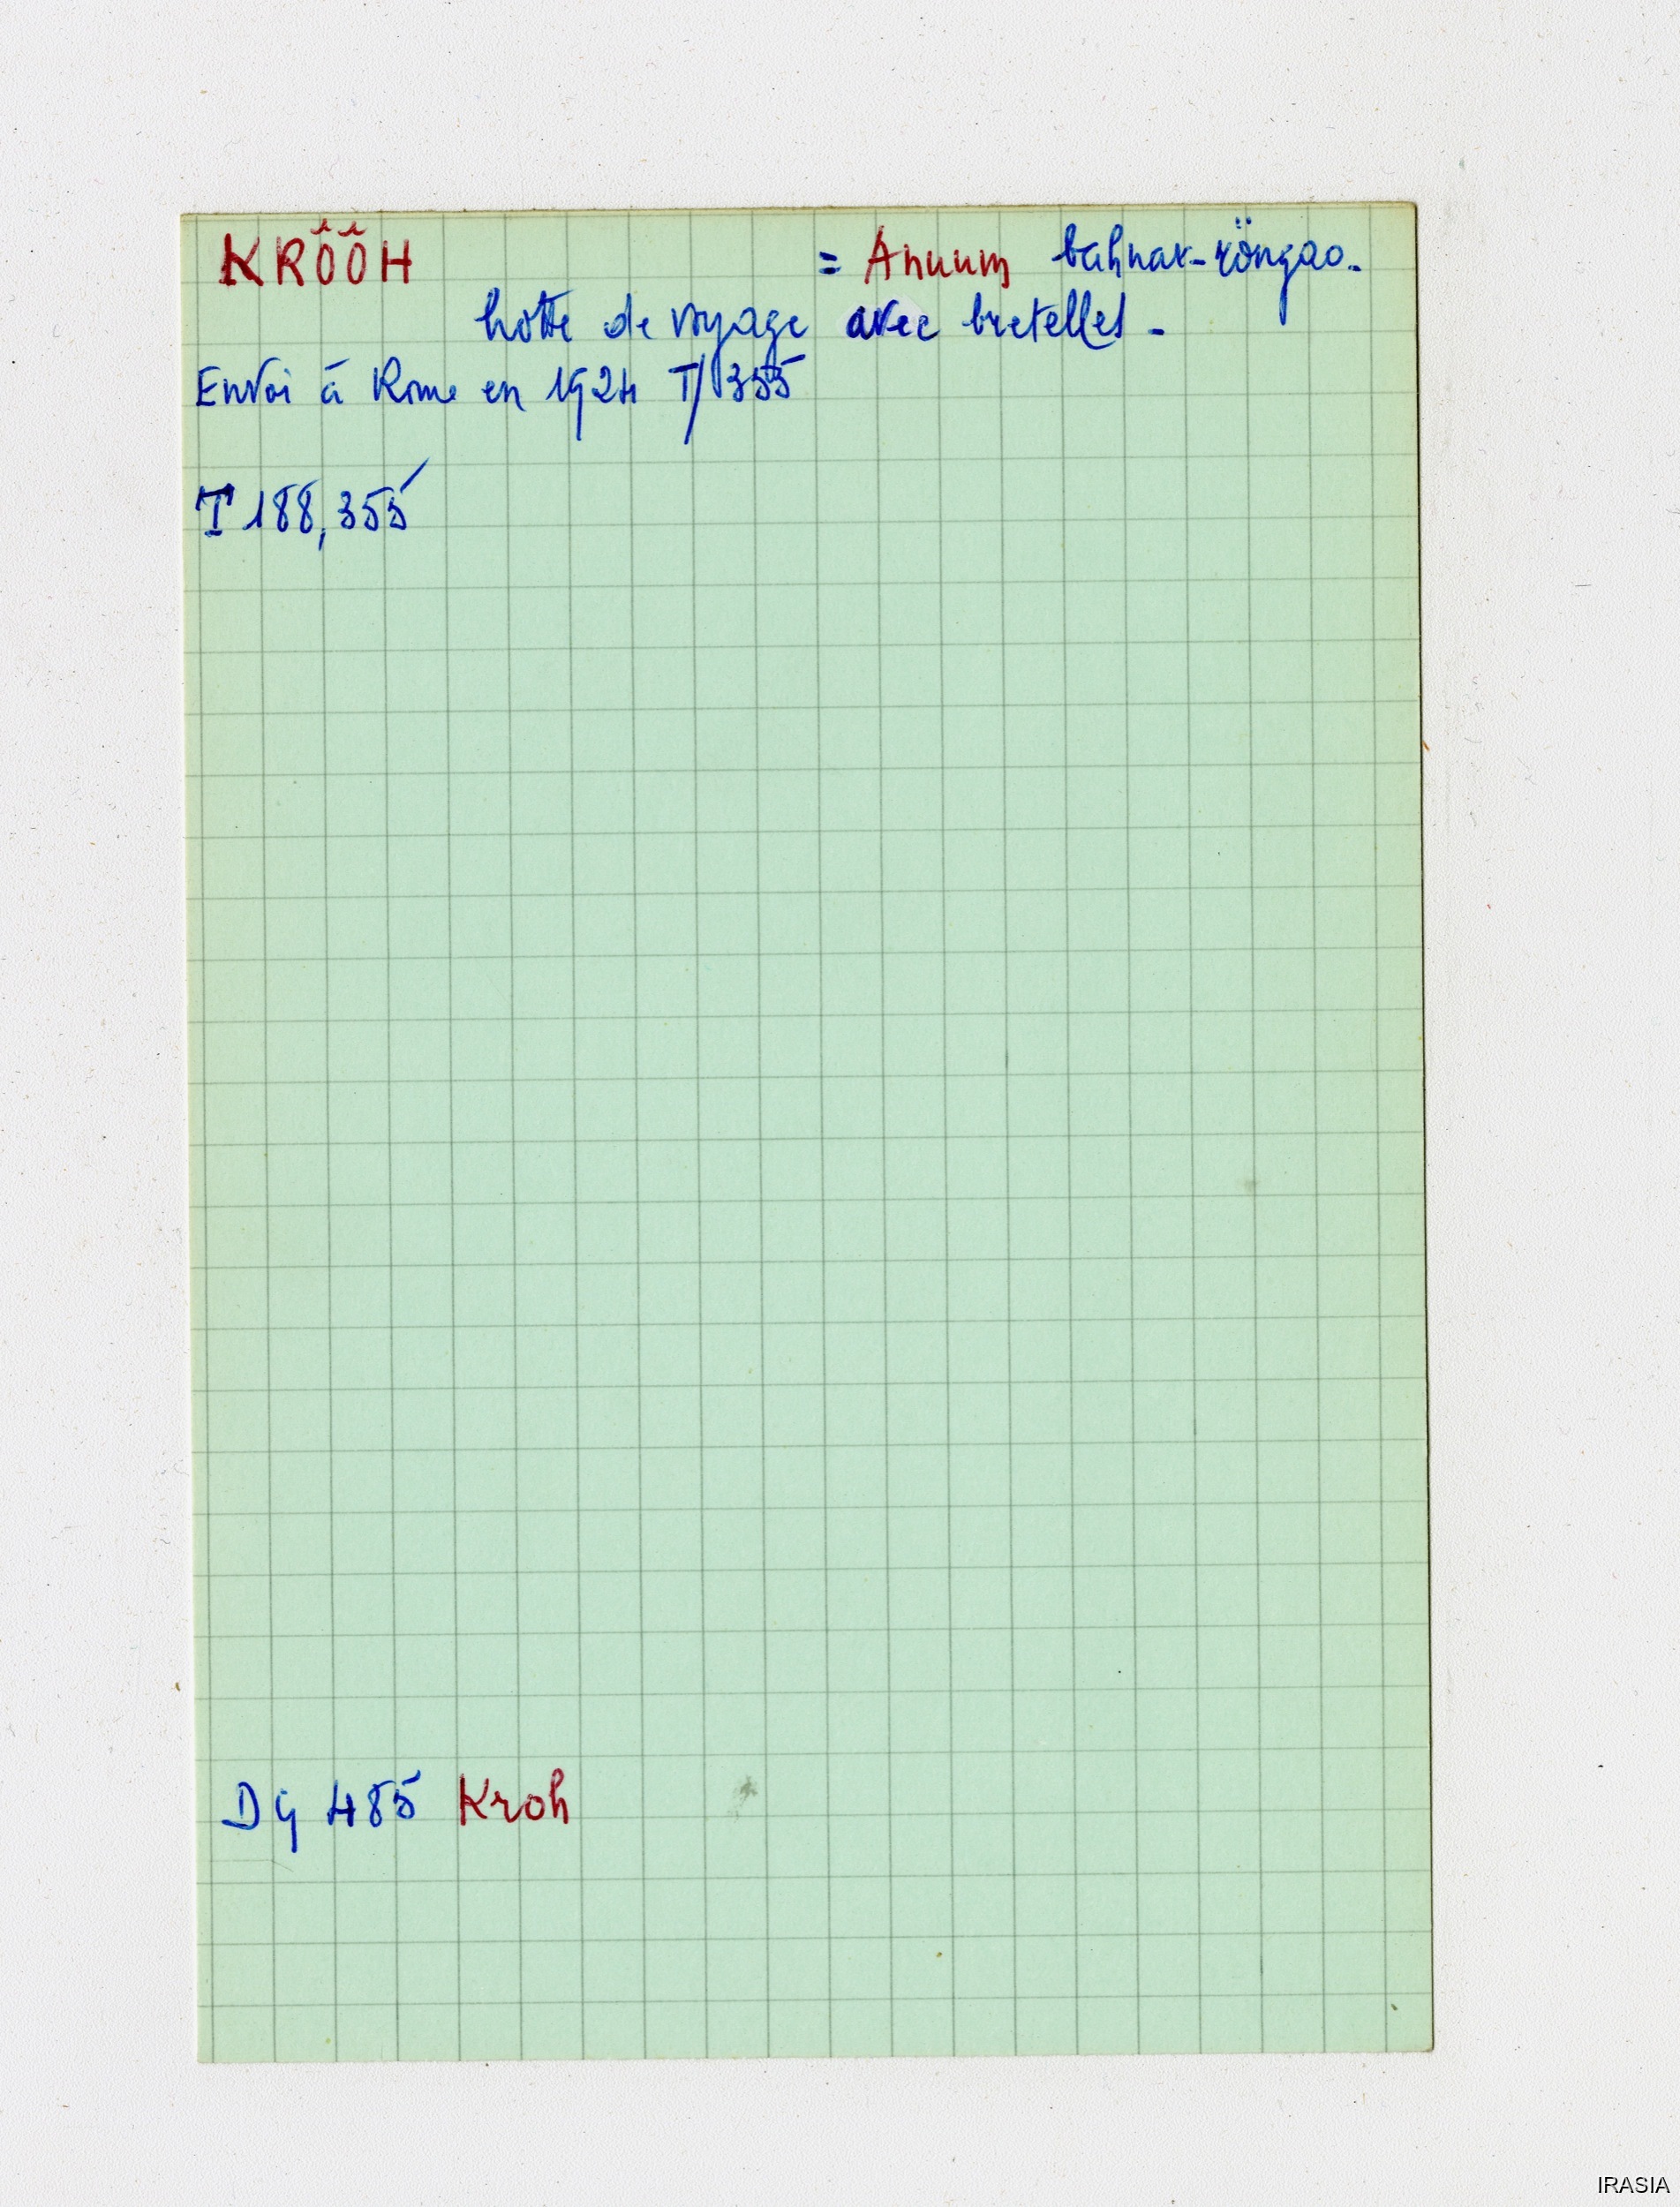 KRÔ̆Ô̆H = Anuum bahnar-röngao.
hotte de voyage avec bretelles -
Envoi à Rome en 1924 T/355
T 188, 355
Dg 485 Kroh
IRASIA